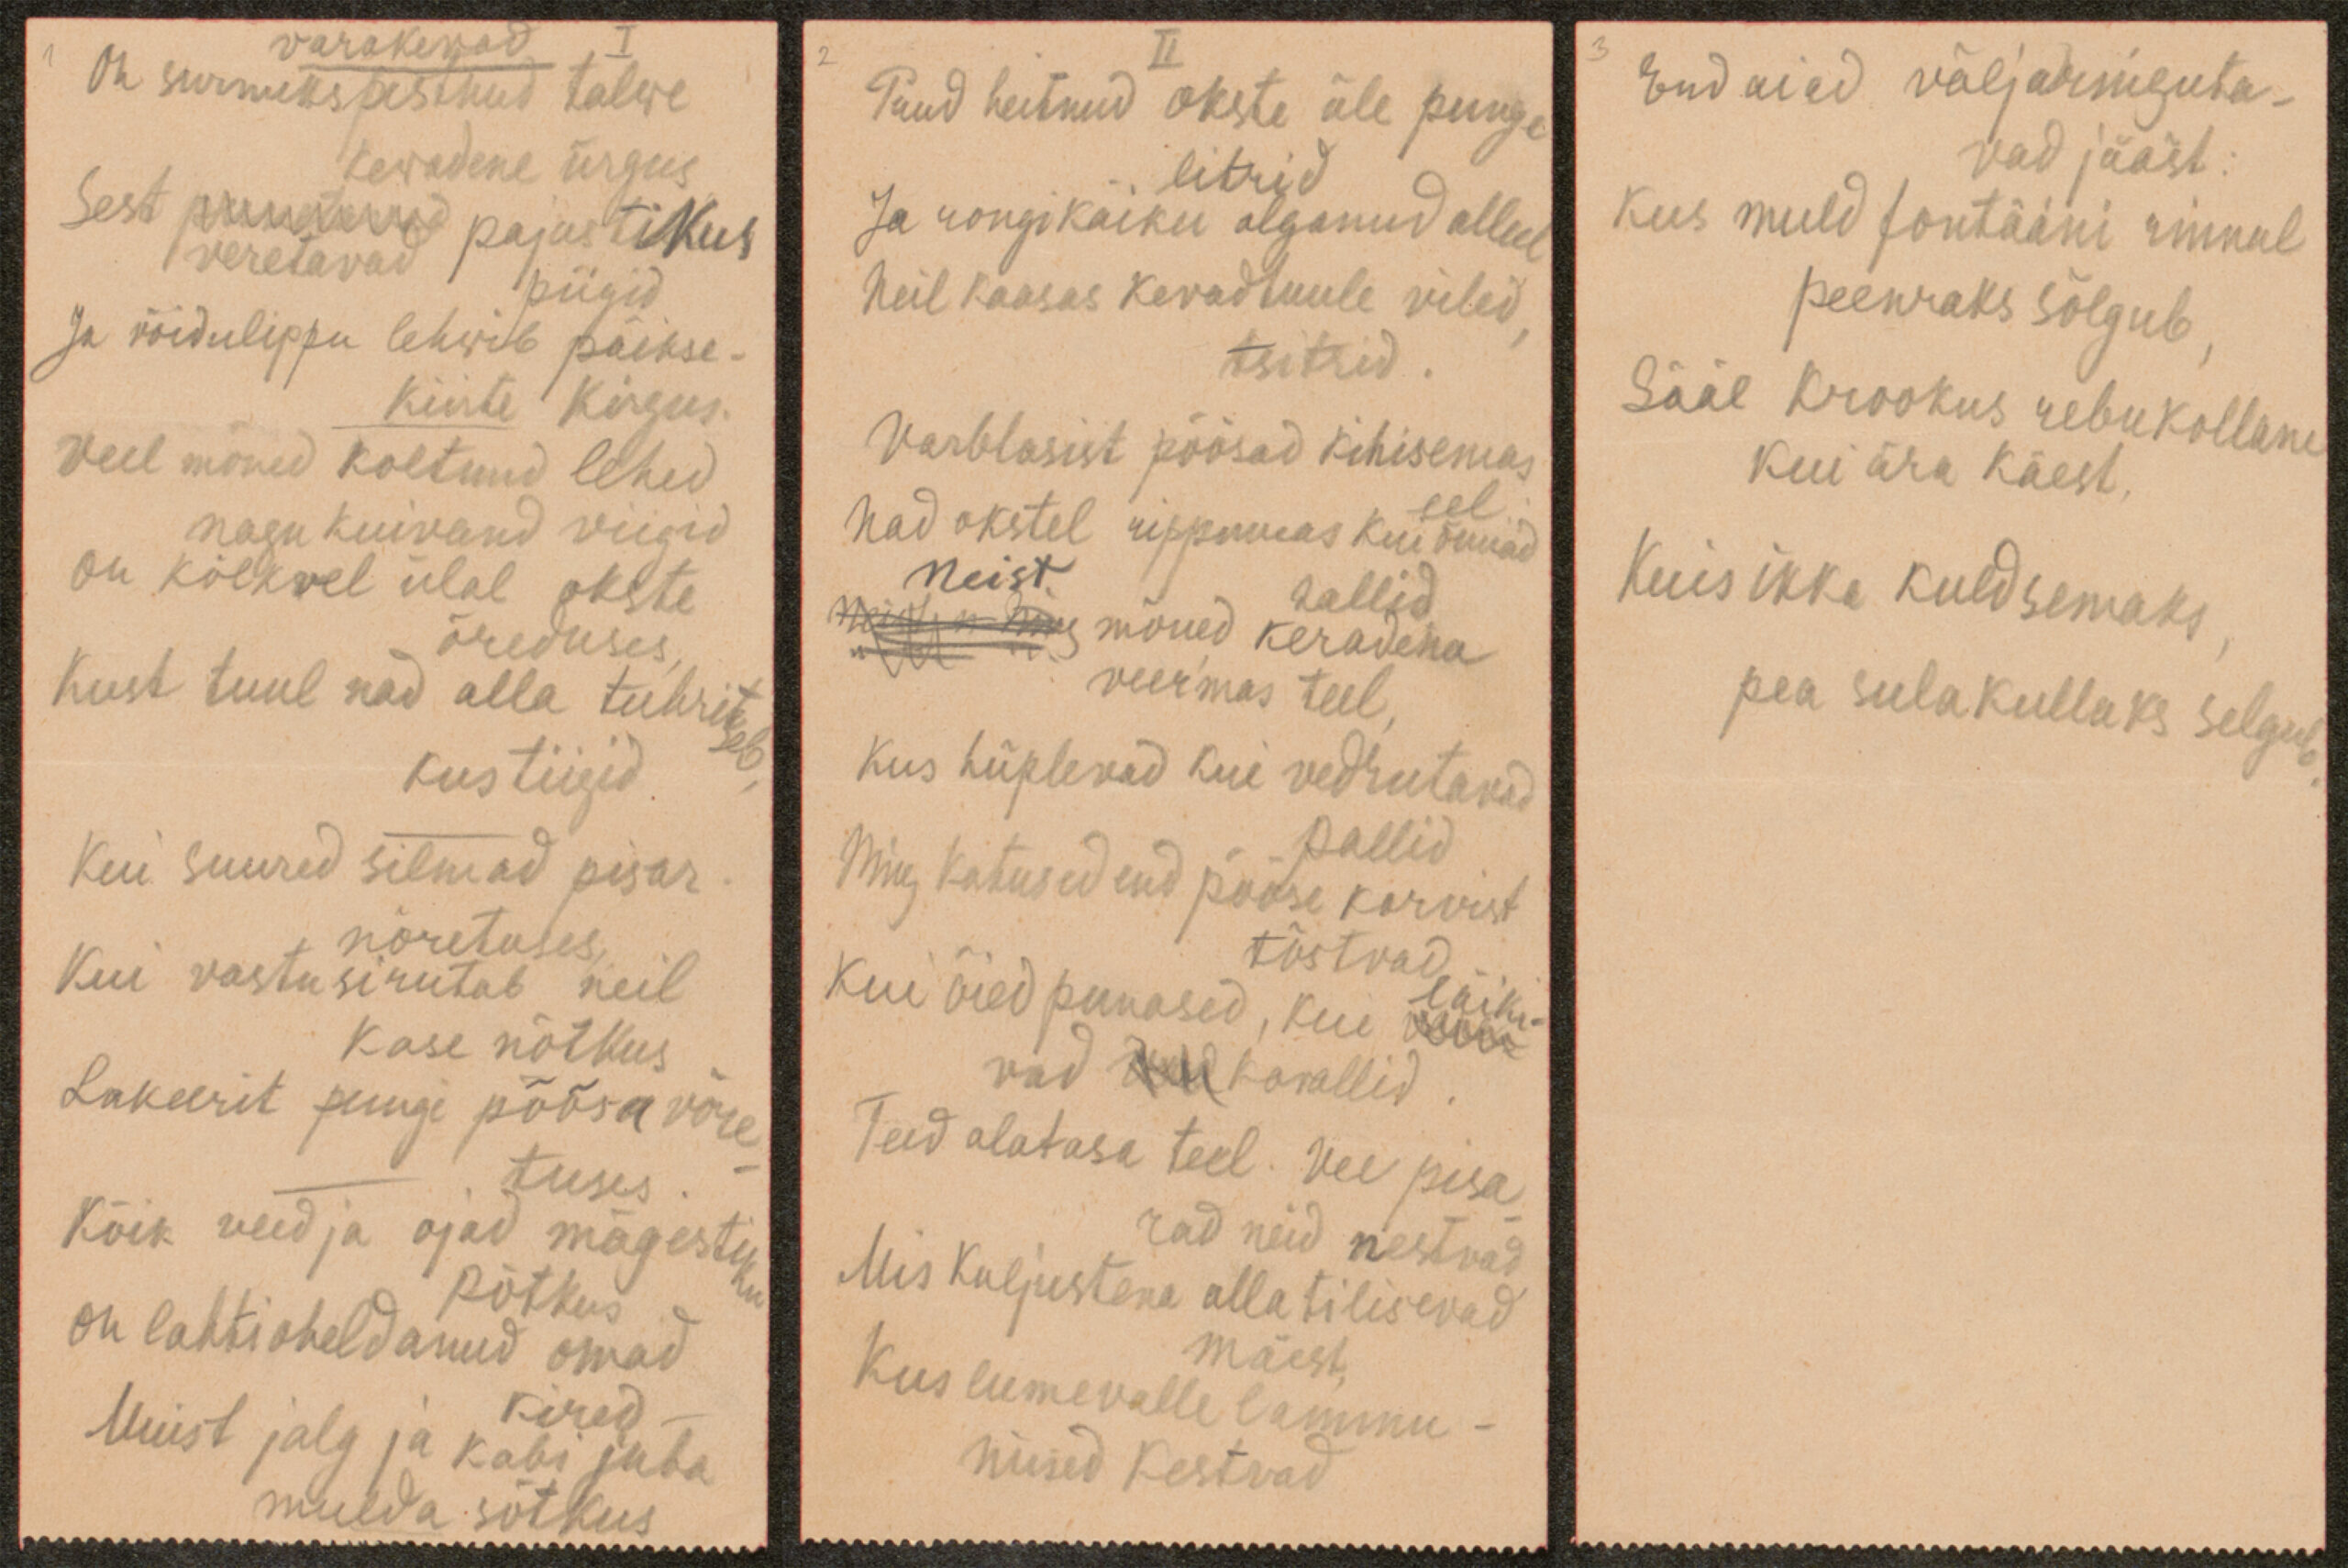 1
varakewad I
On surnukspestnud talwe
kewadene ürgus
Sest
veretavad pajustikus
piigid
Ja võidulippu lehwib päikse-
kiirte kirgus.
Veel mõned koltund lehed
nagu kuivand viigid
On kõlkvel ülal okste
õreduses,
Kust tuul nad alla tuhrit-
seb,
kus tiigid
Kui suured silmad pisar-
nõretuses,
Kui vastu sirutab neil
kase nõtkus
Lakeerit punge põõsa võre-
tuses.
Kõik veed ja ojad mägestiku
põtkus
On lahti aheldanud omad
kired –
Muist jalg ja kabi juba
mulda sõtkus
2
II
Puud heitnud okste üle punge
litrid
Ja rongikäiku alganud alleel
Neil kaasas kevadtuule viled,
tsitrid.
Varblasist põõsad kihisemas
eel
Nad okstel rippumas kui õunad
rallid
Neist mõned keradena
veermas teel,
Kus hüplevad kui vedrutavad
pallid
Ning katused end pööse korvist
tõstvad
Kui õied punased, kui läiki-
vad korallid.
Teed alatasa teel. Vee pisa-
rad neid nestvad
Mis kuljustena alla tilisevad
mäest,
Kus lumevalle lammu-
nüüd kestvad
3
End aiad väljaringuta-
vad jääst:
Kus muld fontääni rinnal
peenraks sõlgub,
Sääl krookus rebukollane
kui ära käest,
Kuis ikka kuldsemaks,
pea sulakullaks selgub.